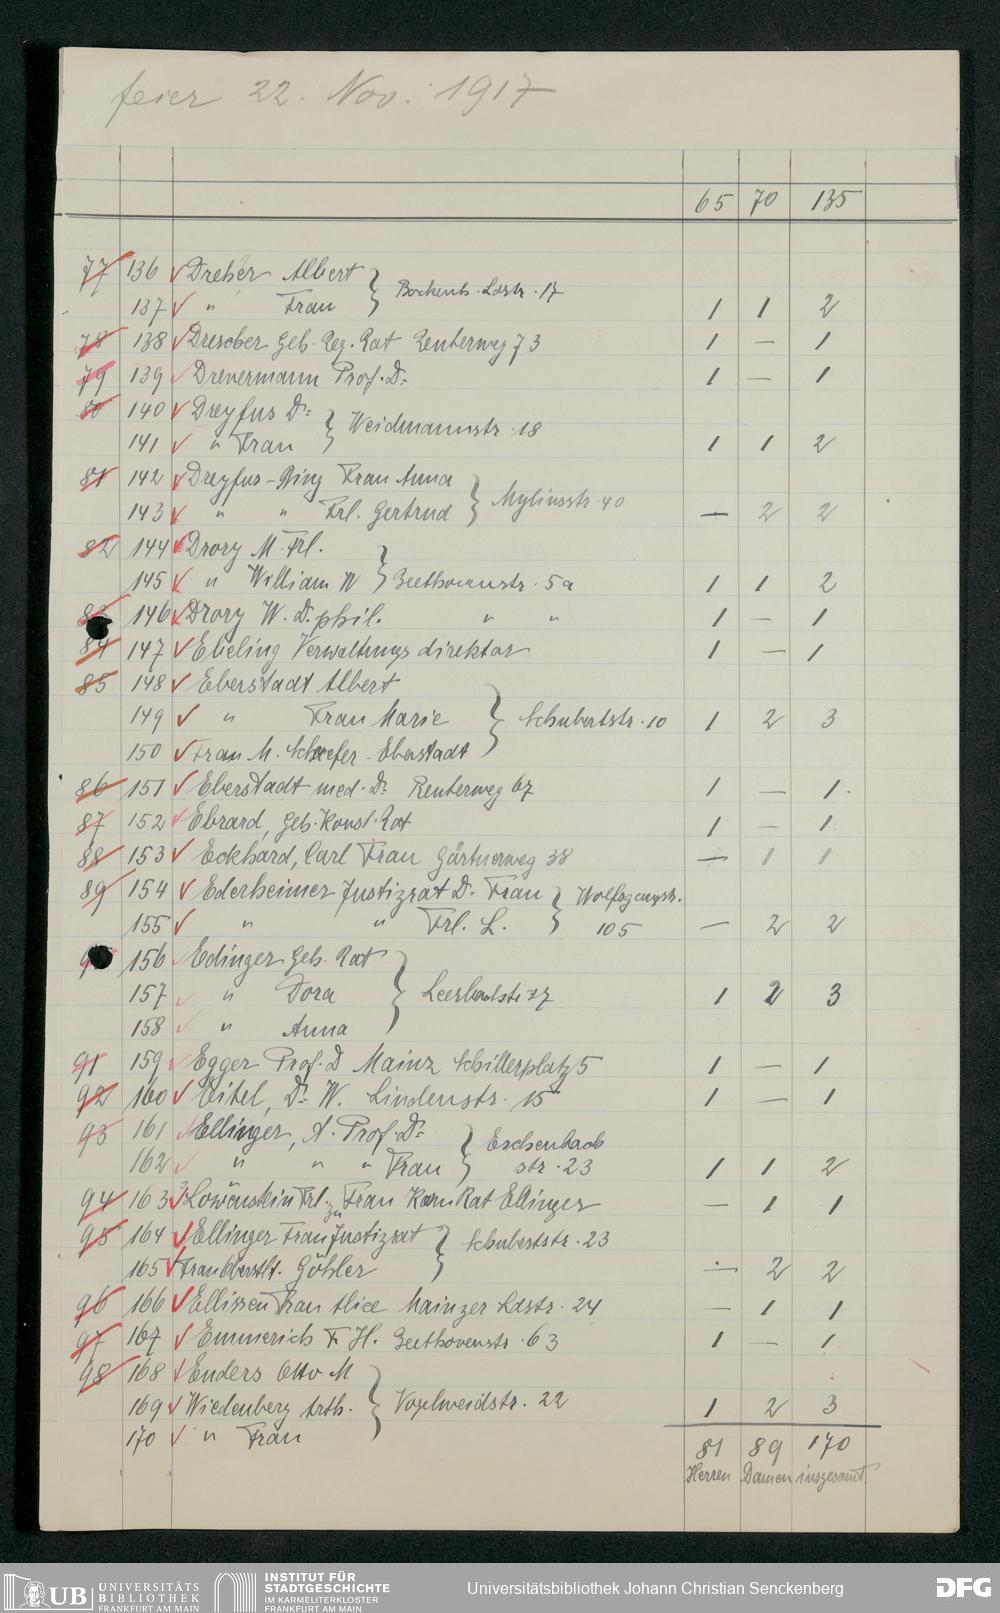 feier 22. Nov. 1917
65 70 135
77 136 Dreher Albert
Bockenh. Ldstr. 17
137 " Frau 1 1 2
78 138 Drescher Geh. Reg. Rat Reuterweg 73 1 — 1
79 139 Drevermann Prof. Dr. 1 — 1
80 140 Dreyfus Dr.
Weidmannstr. 18
141 " Frau 1 1 2
81 142 Dreyfus-Ring Frau Anna
Myliusstr. 40
143 " " Frl. Gertrud — 2 2
82 144 Drory M. Frl.
145 " William W Beethovenstr. 5a 1 1 2
146 Drory W. Dr. phil. " " 1 — 1
84 147 Ebeling Verwaltungsdirektor 1 — 1
85 148 Eberstadt Albert
149 " Frau Marie Schubertstr. 10 1 2 3
150 Frau M. Schaefer-Eberstadt
86 151 Eberstadt med. Dr. Reuterweg 67 1 — 1.
87 152 Ebrard, Geh. Konsl. Rat 1 — 1
88 153 Eckhard, Carl Frau Gärtnerweg 38 — 1 1
89 154 Ederheimer Justizrat Dr. Frau Wolfsgangstr.
155 " " Frl. L. 105 — 2 2
156 Edinger Geh. Rat
157 " Dora Leerbachstr. 27 1 2 3
158 " Anna
91 159 Egger Prof. D Mainz Schillerplatz 5 1 — 1
92 160 Eitel, Dr. W. Lindenstr. 15 1 — 1
93 161 Ellinger, A. Prof. Dr. Eschenbach
162 " " " Frau str. 23 1 1 2
94 163 Löwenstein Frl. zu Frau Kom Rat Ellinger — 1 1
95 164 Ellinger Frau Justizrat Schubertstr. 23
165 Frau Oberstlt. Göhler — 2 2
96 166 Ellissen Frau Alice Mainzer Ldstr. 24 — 1 1
97 167 Emmerich F. H. Beethovenstr. 63 1 — 1
98 168 Enders Otto M
169 Wiedenberg Arth. Vogelweidstr. 22 1 2 3
170 " Frau
81 89 170
Herren Damen insgesamt
UB UNIVERSITÄTS
BIBLIOTHEK
FRANKFURT AM MAIN
INSTITUT FÜR
STADTGESCHICHTE
IM KARMELITERKLOSTER
FRANKFURT AM MAIN
Universitätsbibliothek Johann Christian Senckenberg
DFG